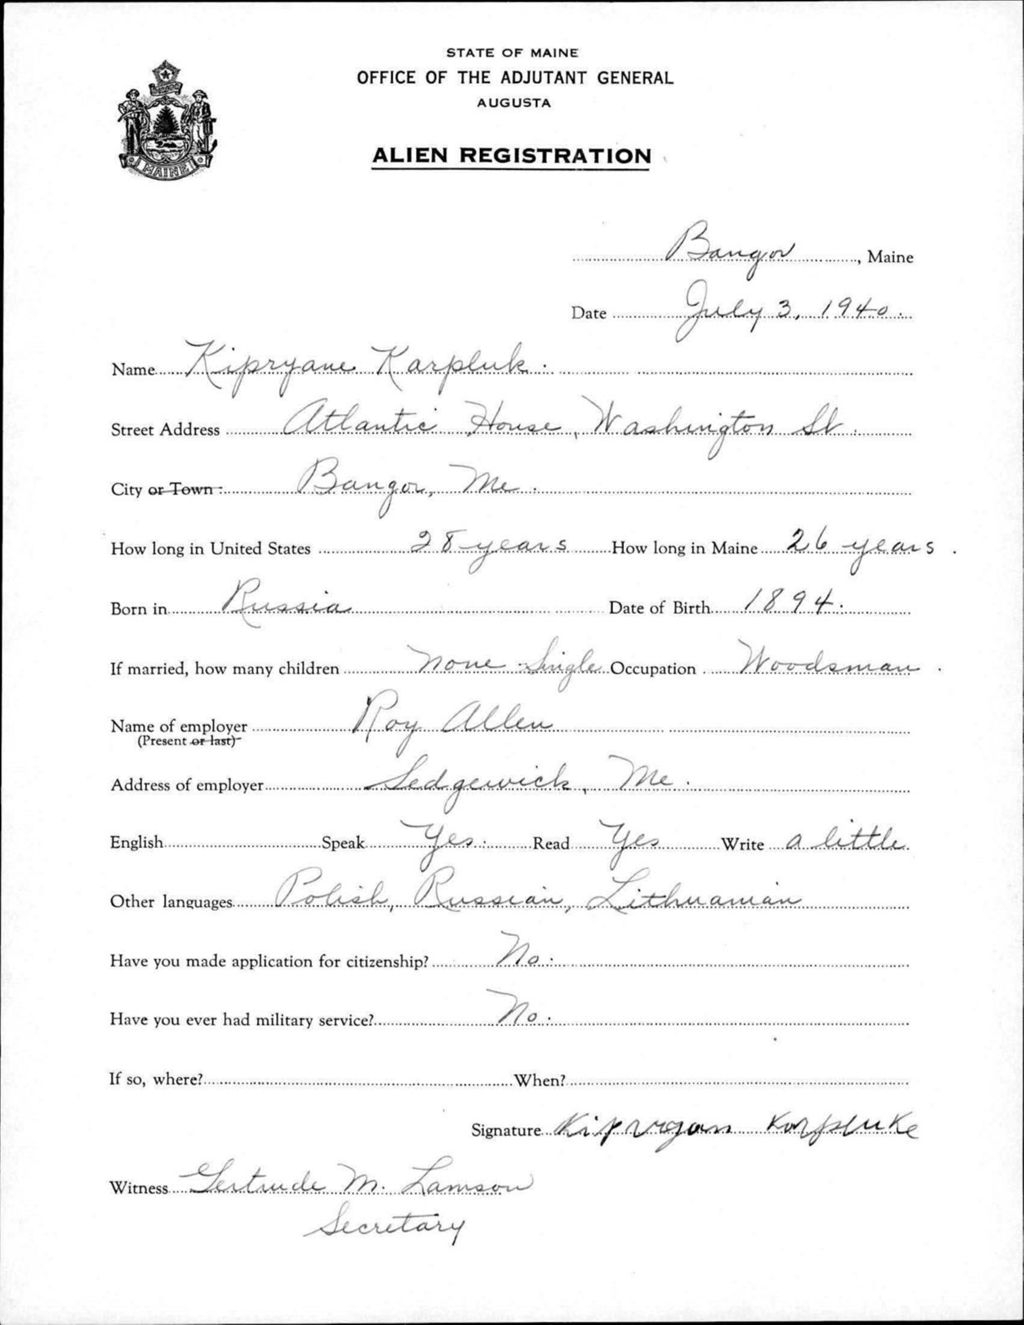 STATE OF MAINE
OFFICE OF THE ADJUTANT GENERAL
AUGUSTA
ALIEN REGISTRATION
MAINE
Bangor, Maine
Date July 3, 1940.
Name Kipryane Karpluk.
Street Address Atlantic House, Washington St.
City or Town Bangor, Me.
How long in United States 28 years How long in Maine 26 years.
Born in Russia Date of Birth 1894.
If married, how many children None - Single Occupation Woodsman.
Name of employer Roy Allen
(Present or last)
Address of employer Sedgewick, Me.
English Speak Yes. Read Yes Write a little.
Other languages Polish, Russian, Lithuanian
Have you made application for citizenship? No.
Have you ever had military service? No.
If so, where? When?
Signature Kiprygan Karpluke
Witness Gertrude M. Lamson
Secretary